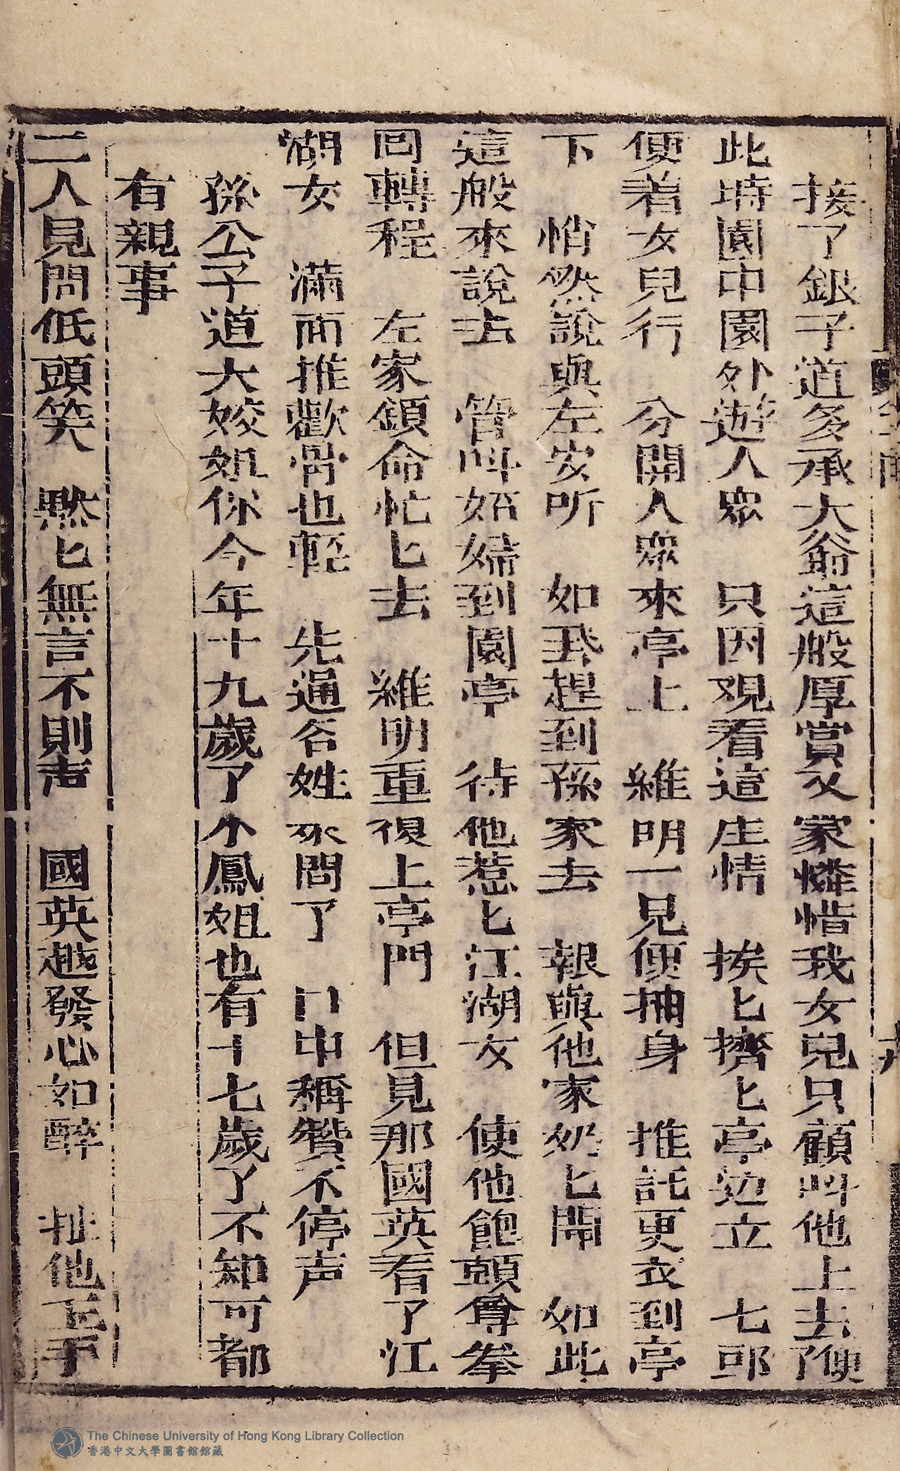 接了銀子道多承大爺這般厚賞又蒙憐惜我女兒只顧叫他上去了便
此時園中園外遊人眾　只因观看這庄情　挨匕擠匕亭边立　七郎
便着女兒行　分開人眾來亭上　維明一見便抽身　推託更衣到亭
下　悄然說與左安听　如飛趕到孫家去　報與他家奶匕聞　如此
這般來說去　管叫妬婦到園亭　待他惹匕江湖女　使他飽頼尊拳
回轉程　左家領命忙匕去　維明重復上亭門　但見那國英看了江
湖女　滿面推歡骨也輕　先通名姓來問了　口中稱贊不停声
孫公子道大姣姐你今年十九歲了小鳳姐也有十七歲了不知可都
有親事
二人見問低頭笑　黙匕無言不則声　國英越發心如醉　扯他玉手
The Chinese University of Hong Kong Library Collection
香港中文大學圖書館館藏